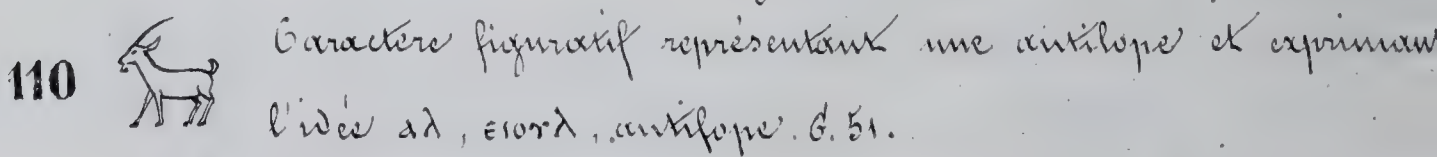 110 Caractère figuratif représentant une antilope et exprimant
l'idée ⲁⲗ, ⲉⲓⲟⲩⲗ, antilope. G. 51.